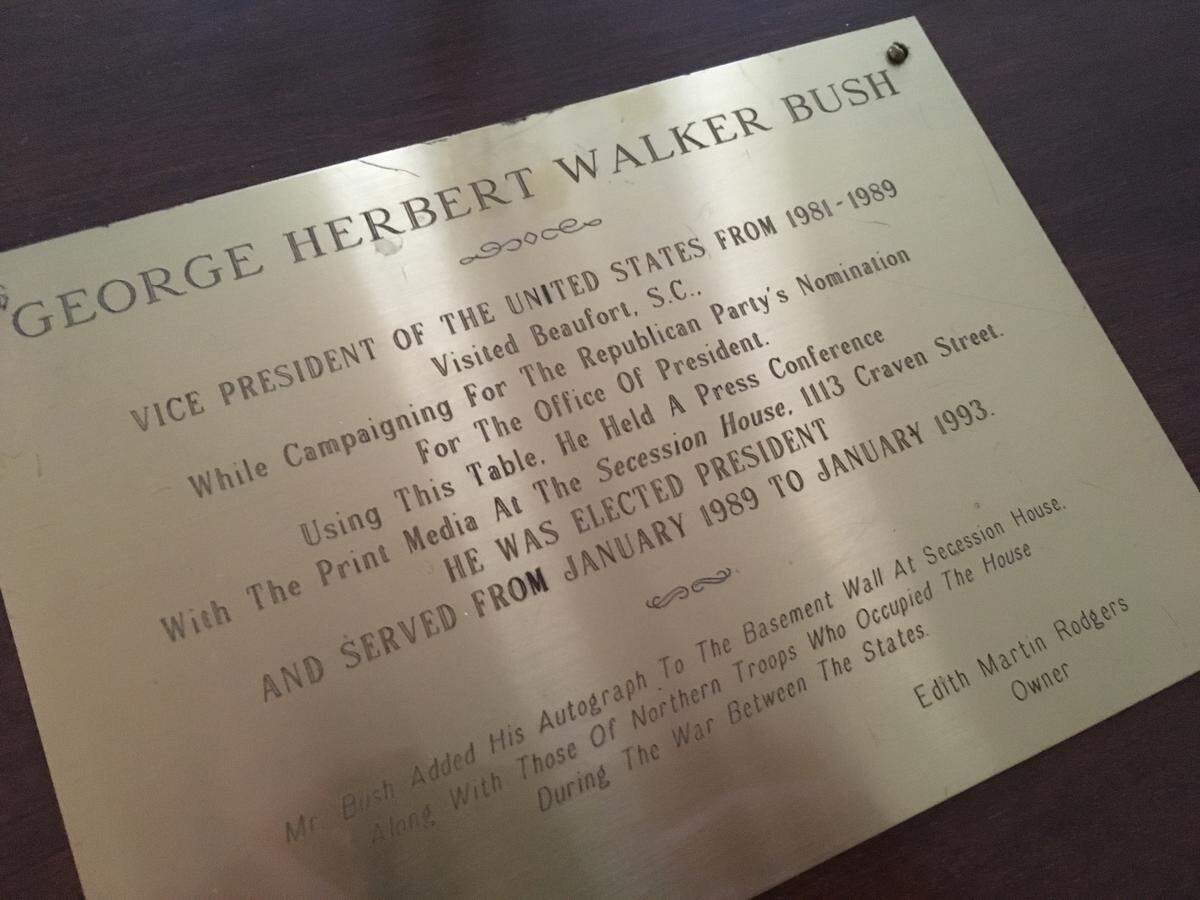 GEORGE HERBERT WALKER BUSH
VICE PRESIDENT OF THE UNITED STATES FROM 1981-1989
Visited Beaufort, S.C.,
While Campaigning For The Republican Party's Nomination
For The Office Of President.
Using This Table, He Held A Press Conference
With The Print Media At The Secession House, 1113 Craven Street.
HE WAS ELECTED PRESIDENT
AND SERVED FROM JANUARY 1989 TO JANUARY 1993.
Mr. Bush Added His Autograph To The Basement Wall At Secession House,
Along With Those Of Northern Troops Who Occupied The House
During The War Between The States.
Edith Martin Rodgers
Owner